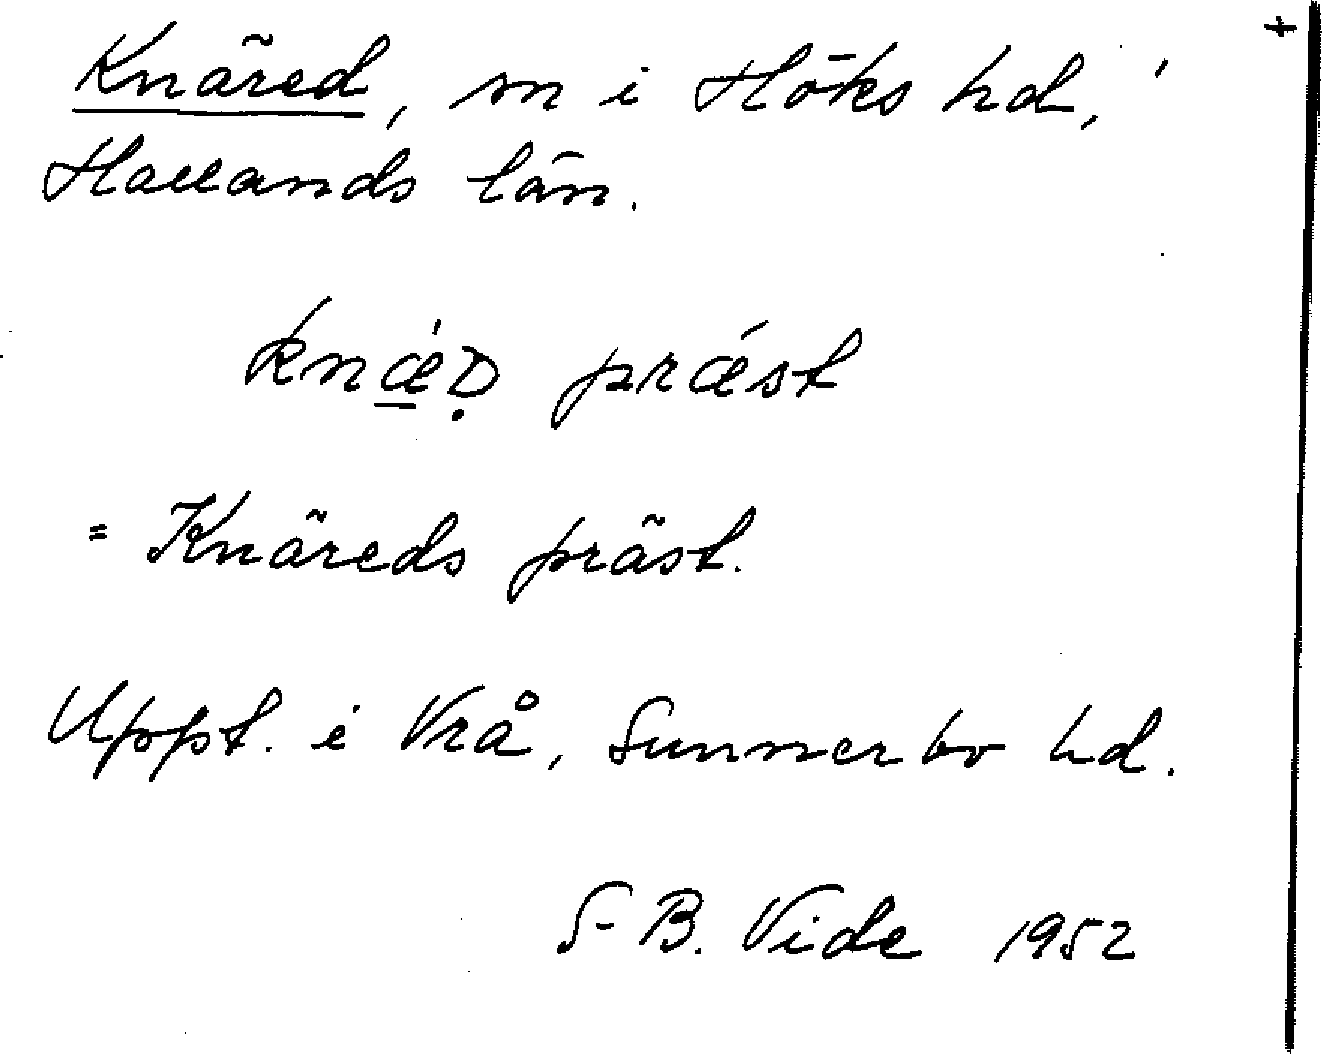 Knäred, sn i Höks hd,
Hallands län.
knǽD prǽst
= Knäreds präst.
Uppt. i Vrå, Sunnerbo hd.
S-B. Vide 1952